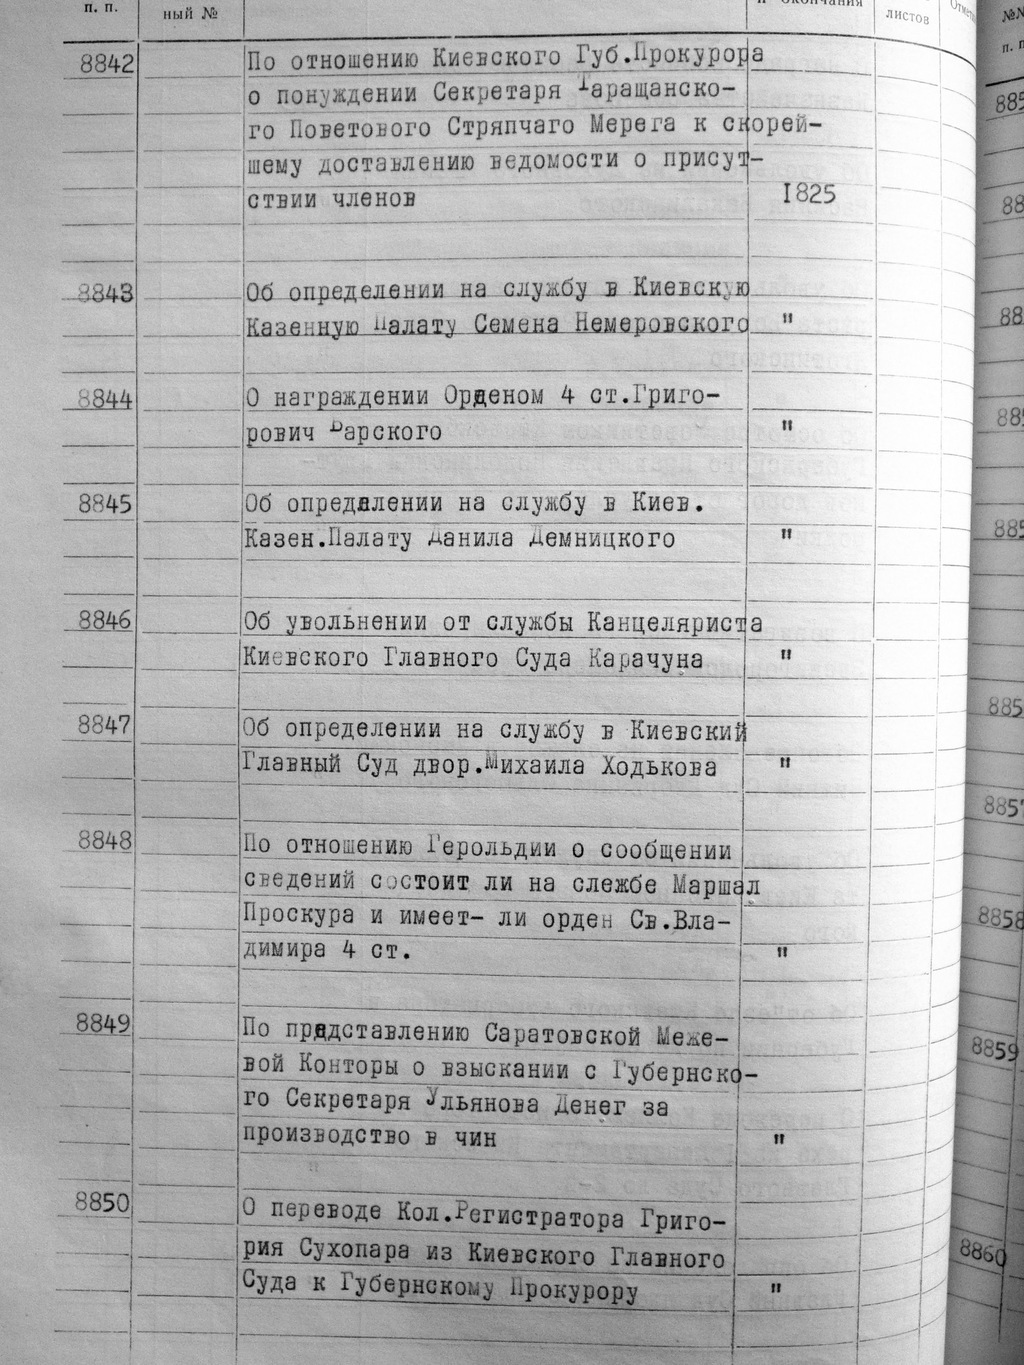 п. п.
ный №
и окончания
листов
№№
п. п
8842
По отношению Киевского Губ.Прокурора
о понуждении Секретаря Таращанско-
го Поветового Стряпчаго Мерега к скорей-
шему доставлению ведомости о присут-
ствии членов 1825
8843 Об определении на службу в Киевскую
Казенную Палату Семена Немеровского "
8844 О награждении Орденом 4 ст.Григо-
рович Барского "
8845 Об определении на службу в Киев.
Казен.Палату Данила Демницкого "
8846 Об увольнении от службы Канцеляриста
Киевского Главного Суда Карачуна "
8847 Об определении на службу в Киевский
Главный Суд двор.Михаила Ходькова "
8848 По отношению Герольдии о сообщении
сведений состоит ли на слежбе Маршал
Проскура и имеет- ли орден Св.Вла-
димира 4 ст. "
8849 По представлению Саратовской Меже-
вой Конторы о взыскании с Губернско-
го Секретаря Ульянова Денег за
производство в чин "
8850 О переводе Кол.Регистратора Григо-
рия Сухопара из Киевского Главного
Суда к Губернскому Прокурору "
8857
8858
8859
8860